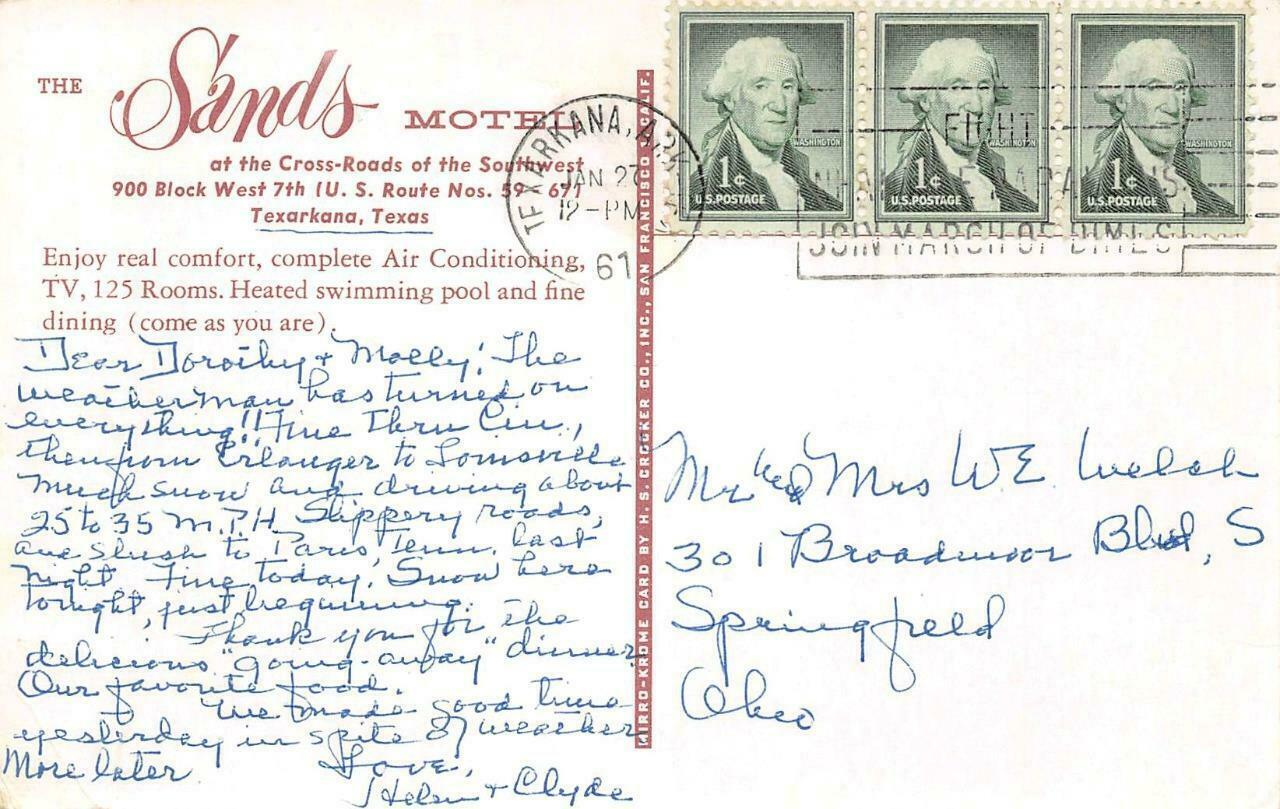 THE Sands MOTEL
at the Cross-Roads of the Southwest
900 Block West 7th (U. S. Route Nos. 59 - 67)
Texarkana, Texas
Enjoy real comfort, complete Air Conditioning,
TV, 125 Rooms. Heated swimming pool and fine
dining (come as you are).
Dear Dorothy & Molly! The
weatherman has turned on
everything!! Fine Thru Cin.,
then from Erlanger to Louisville
much snow and driving about
25 to 35 M.P.H. Slippery roads,
and slush to Paris, Tenn. last
night. Fine today. Snow here
tonight, just beginning.
Thank you for the
delicious "going-away" dinner
Our favorite food.
We made good time
yesterday in spite of weather
More later Love,
Helen & Clyde
MIRRO-KROME CARD BY H. S. CROCKER CO., INC., SAN FRANCISCO 1, CALIF.
TEXARKANA, ARK.
JAN 27
12-PM
61
1¢ WASHINGTON U.S. POSTAGE
1¢ WASHINGTON U.S. POSTAGE
1¢ WASHINGTON U.S. POSTAGE
FIGHT
JOIN MARCH OF DIMES
Mr and Mrs W.E. Welch
301 Broadmoor Blvd, S
Springfield
Ohio